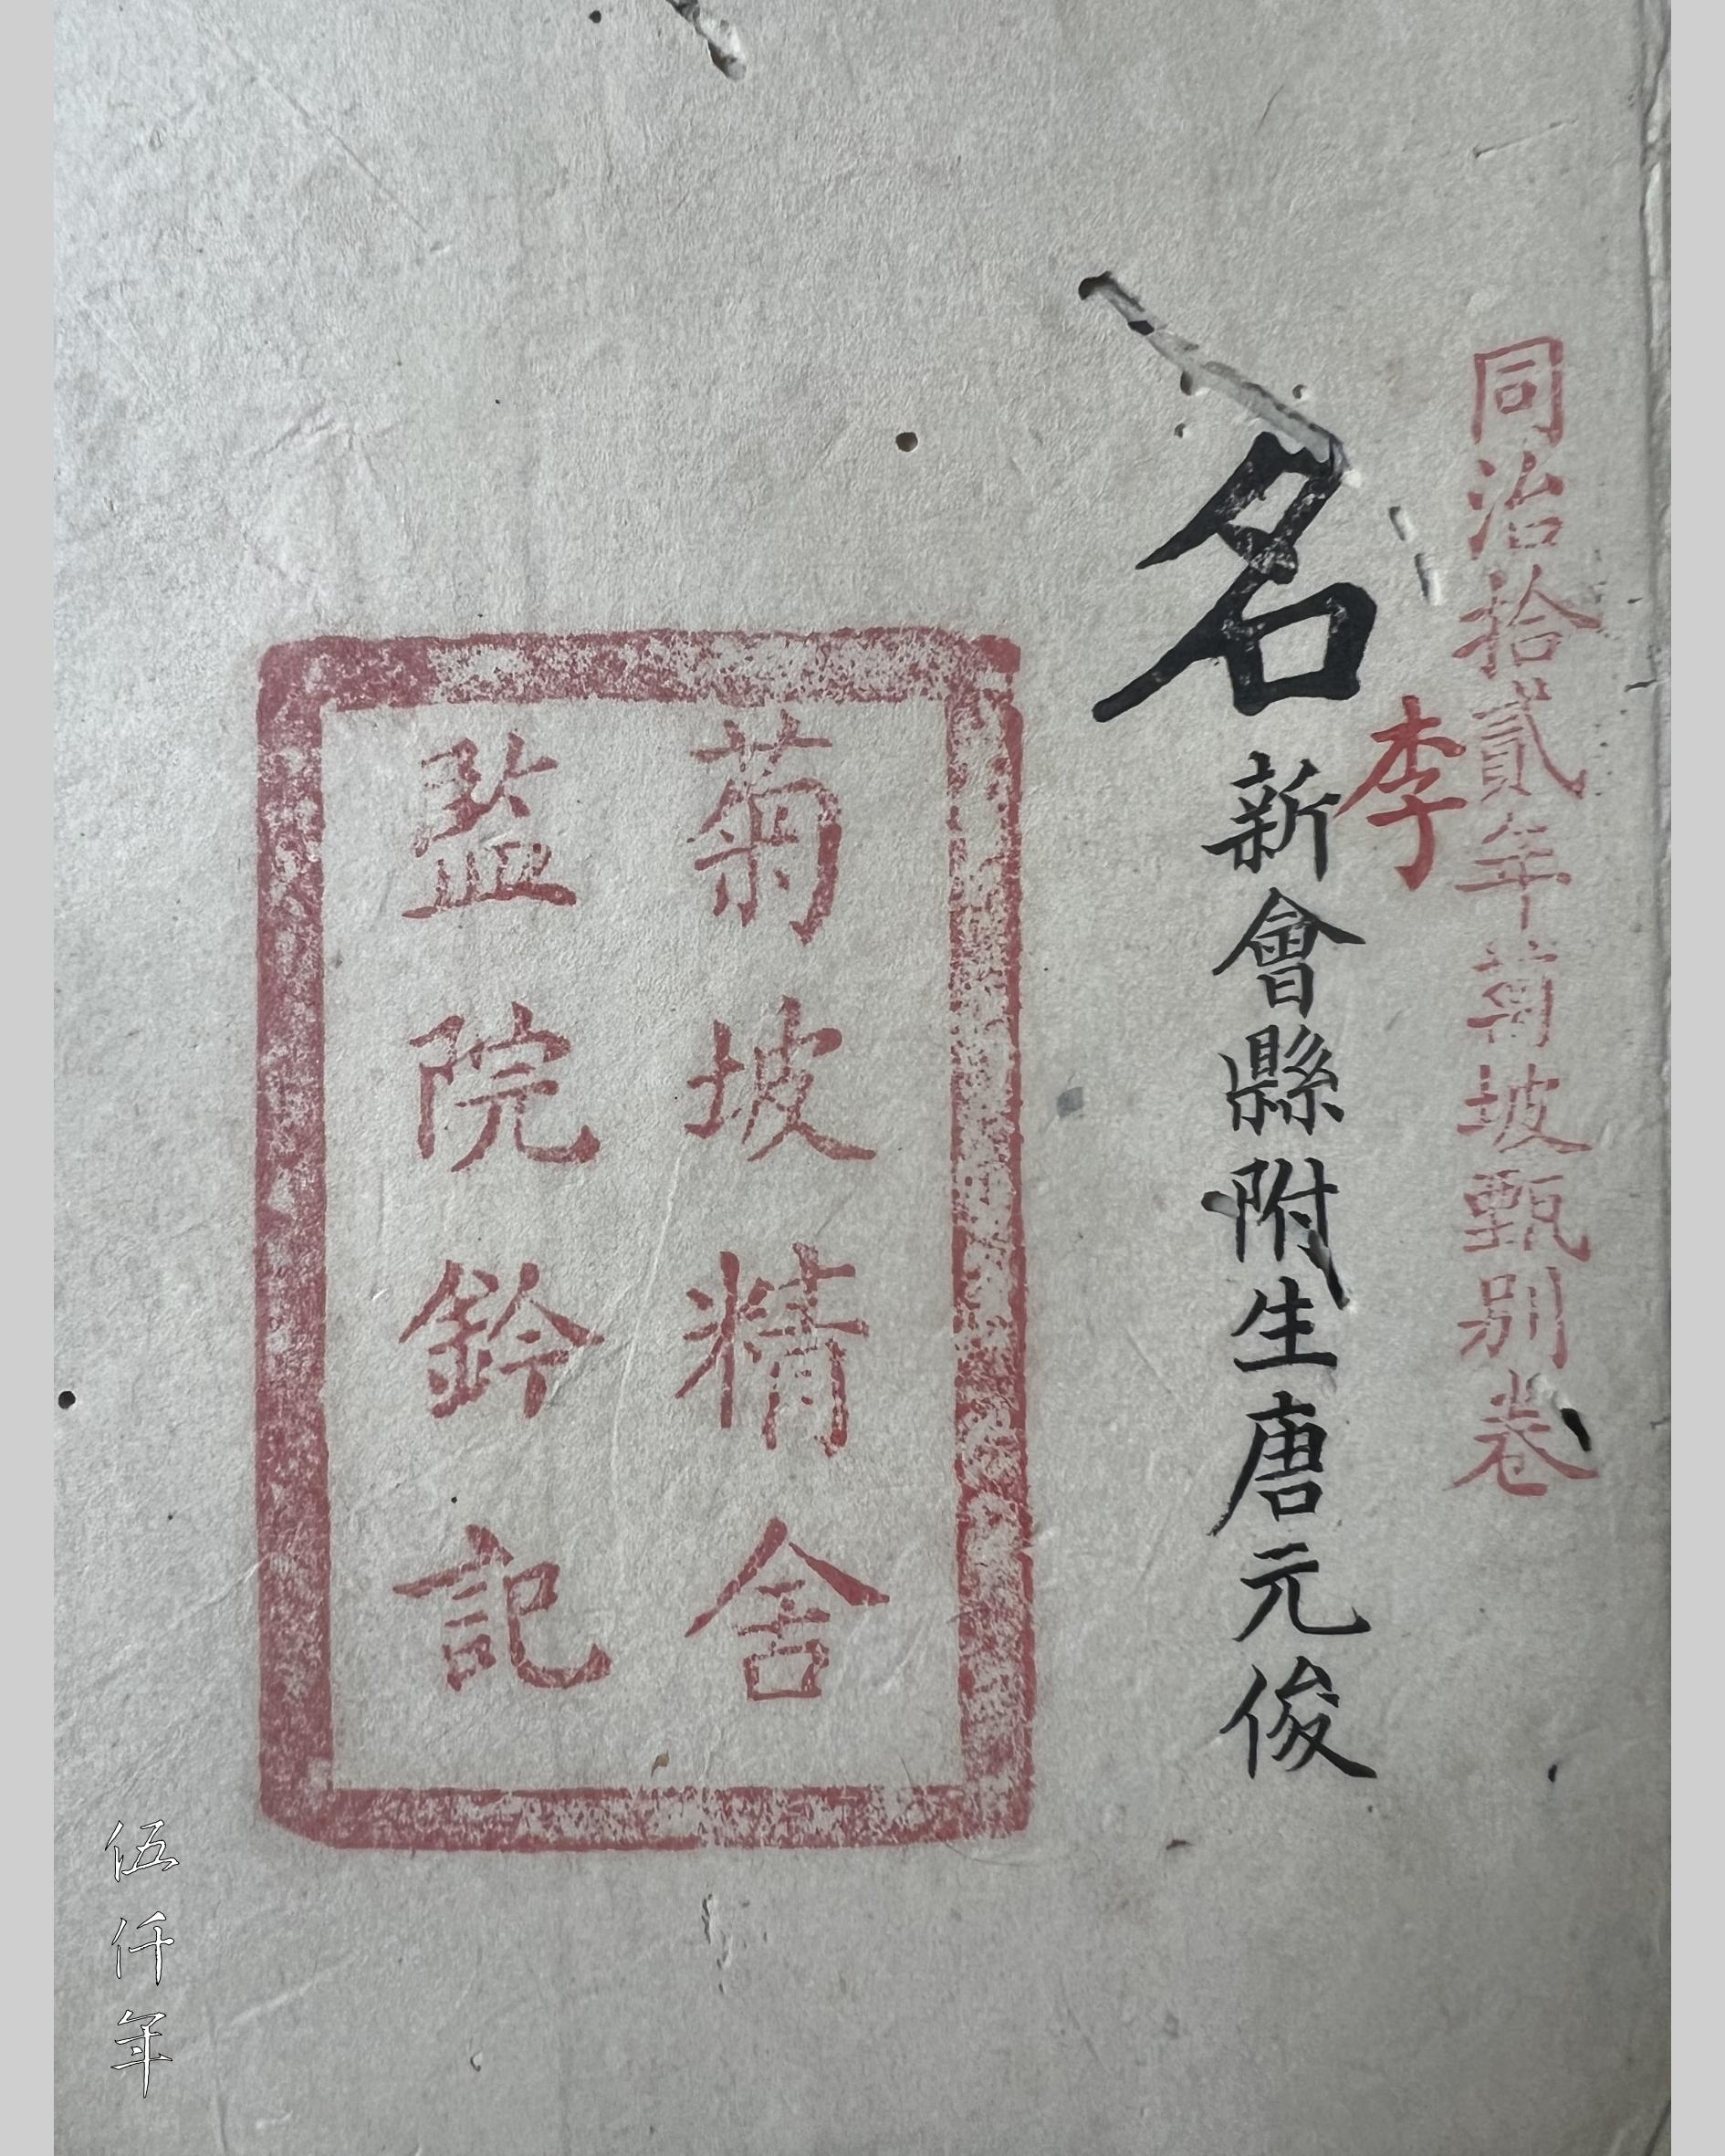 同治拾貳年菊坡甄別卷
李
名
新會縣附生唐元俊
菊坡精舍
監院鈐記
伍仟年